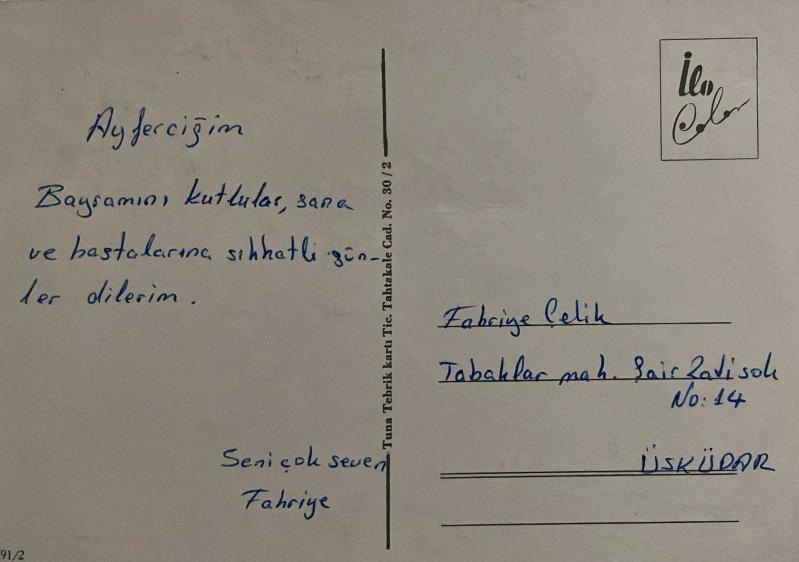 Ayferciğim
Bayramını kutlular, sana
ve hastalarına sıhhatli gün-
ler dilerim.
Seni çok seven
Fahriye
91/2
Tuna Tebrik kartı Tic. Tahtakale Cad. No. 30/2
İlo
Color
Fahriye Çelik
Tabaklar mah. Şair Zati sok
No: 14
ÜSKÜDAR